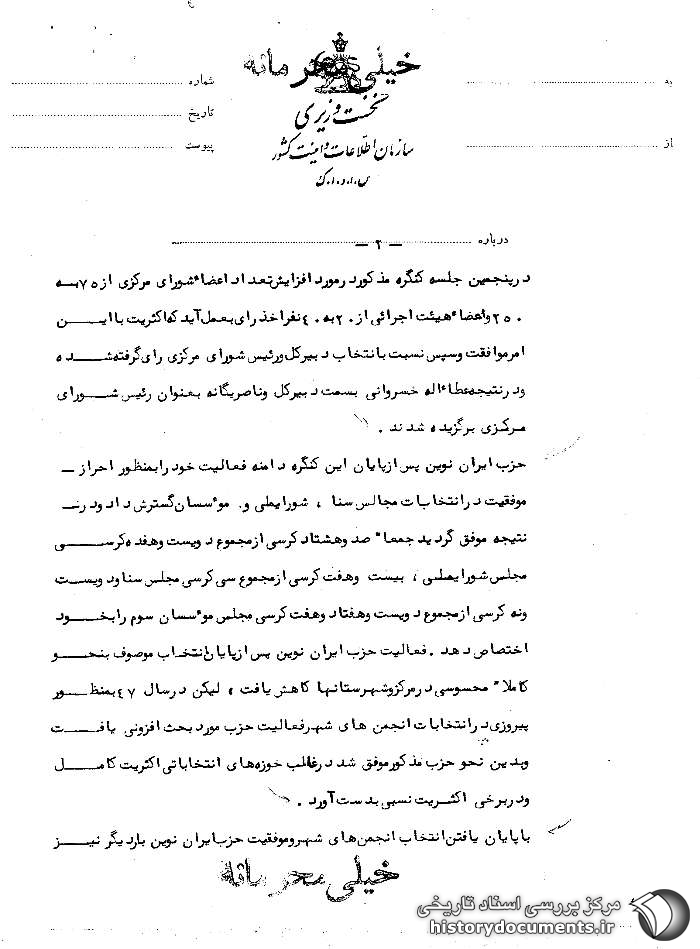 خیلی محرمانه
به
شماره
نخست وزیری
تاریخ
سازمان اطلاعات و امنیت کشور
از
پیوست
س.ا.و.ا.ک
درباره
— ۲ —
در پنجمین جلسه کنگره مذکور در مورد افزایش تعداد اعضاء شورای مرکزی از ۷۵ به
۲۵۰ و اعضاء هیئت اجرائی از ۲۰ به ۴۰ نفر اخذ رای بعمل آید که اکثریت با ایــن
امر موافقت و سپس نسبت با نتخاب دبیرکل و رئیس شورای مرکزی رای گرفته شــده
و در نتیجه عطاءاله خسروانی بسمت دبیرکل و ناصر یگانه بعنوان رئیس شــورای
مرکزی برگزیده شدند .
حزب ایران نوین پس از پایان این کنگره دامنه فعالیت خود را بمنظور احراز –
موفقیت در انتخابات مجالس سنا ، شورایملی و موسسان گسترش داد و در
نتیجه موفق گردید جمعا" صد و هشتاد کرسی از مجموع دویست و هفده کرســی
مجلس شورایملی ، بیست و هفت کرسی از مجموع سی کرسی مجلس سنا و دویست
و نه کرسی از مجموع دویست و هفتاد و هفت کرسی مجلس موسسان سوم را بخــود
اختصاص دهد . فعالیت حزب ایران نوین پس از پایان انتخاب موصوف بنحــو
کاملا" محسوسی در مرکز و شهرستانها کاهش یافت ، لیکن در سال ۴۷ بمنظور
پیروزی در انتخابات انجمن های شهر فعالیت حزب مورد بحث افزونی یافــت
و بدین نحو حزب مذکور موفق شد در غالب حوزه های انتخاباتی اکثریت کامــل
و در برخی اکثریت نسبی بدست آورد .
با پایان یافتن انتخاب انجمن های شهر و موفقیت حزب ایران نوین بار دیگر نیــز
خیلی محرمانه
مرکز بررسی اسناد تاریخی
historydocuments.ir